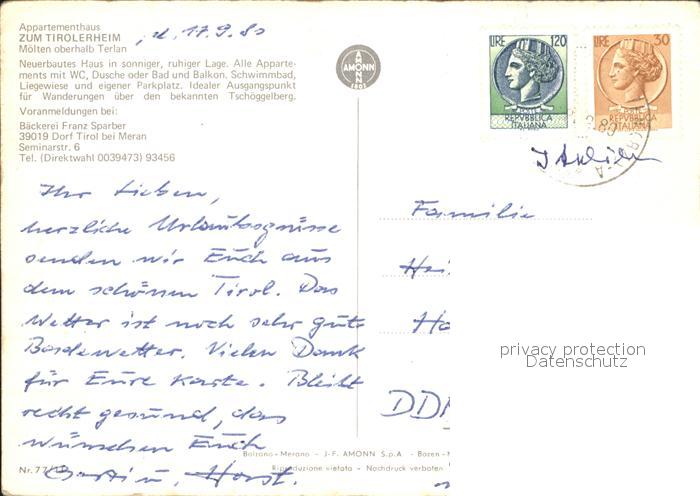 Appartementhaus
ZUM TIROLERHEIM
Mölten oberhalb Terlan
, d. 17.9.80
Neuerbautes Haus in sonniger, ruhiger Lage. Alle Apparte-
ments mit WC, Dusche oder Bad und Balkon. Schwimmbad,
Liegewiese und eigener Parkplatz. Idealer Ausgangspunkt
für Wanderungen über den bekannten Tschögglberg.
Voranmeldungen bei:
Bäckerei Franz Sparber
39019 Dorf Tirol bei Meran
Seminarstr. 6
Tel. (Direktwahl 0039473) 93456
AMONN
1802
LIRE 120
POSTE
REPVBBLICA
ITALIANA
LIRE 30
POSTE
REPVBBLICA
ITALIANA
Italien
Ihr Lieben,
herzliche Urlaubsgrüsse
senden wir Euch aus
dem schönen Tirol. Das
Wetter ist noch sehr gute
Badewetter. Vielen Dank
für Eure Karte. Bleibt
recht gesund, das
wünschen Euch
Horst.
Familie
Hei
Ha
DDR
privacy protection
Datenschutz
Bolzano - Merano - J-F. AMONN S.p.A. - Bozen -
Nr. 77/
Riproduzione vietata - Nachdruck verboten